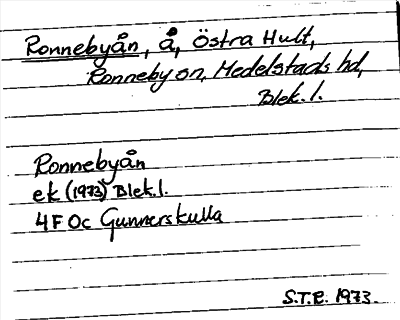 Ronnebyån, å, Östra Hult,
Ronneby sn, Medelstads hd,
Blek. l.
Ronnebyån
ek (1973) Blek. l.
4F 0c Gunnerskulla
S.T.P. 1973.